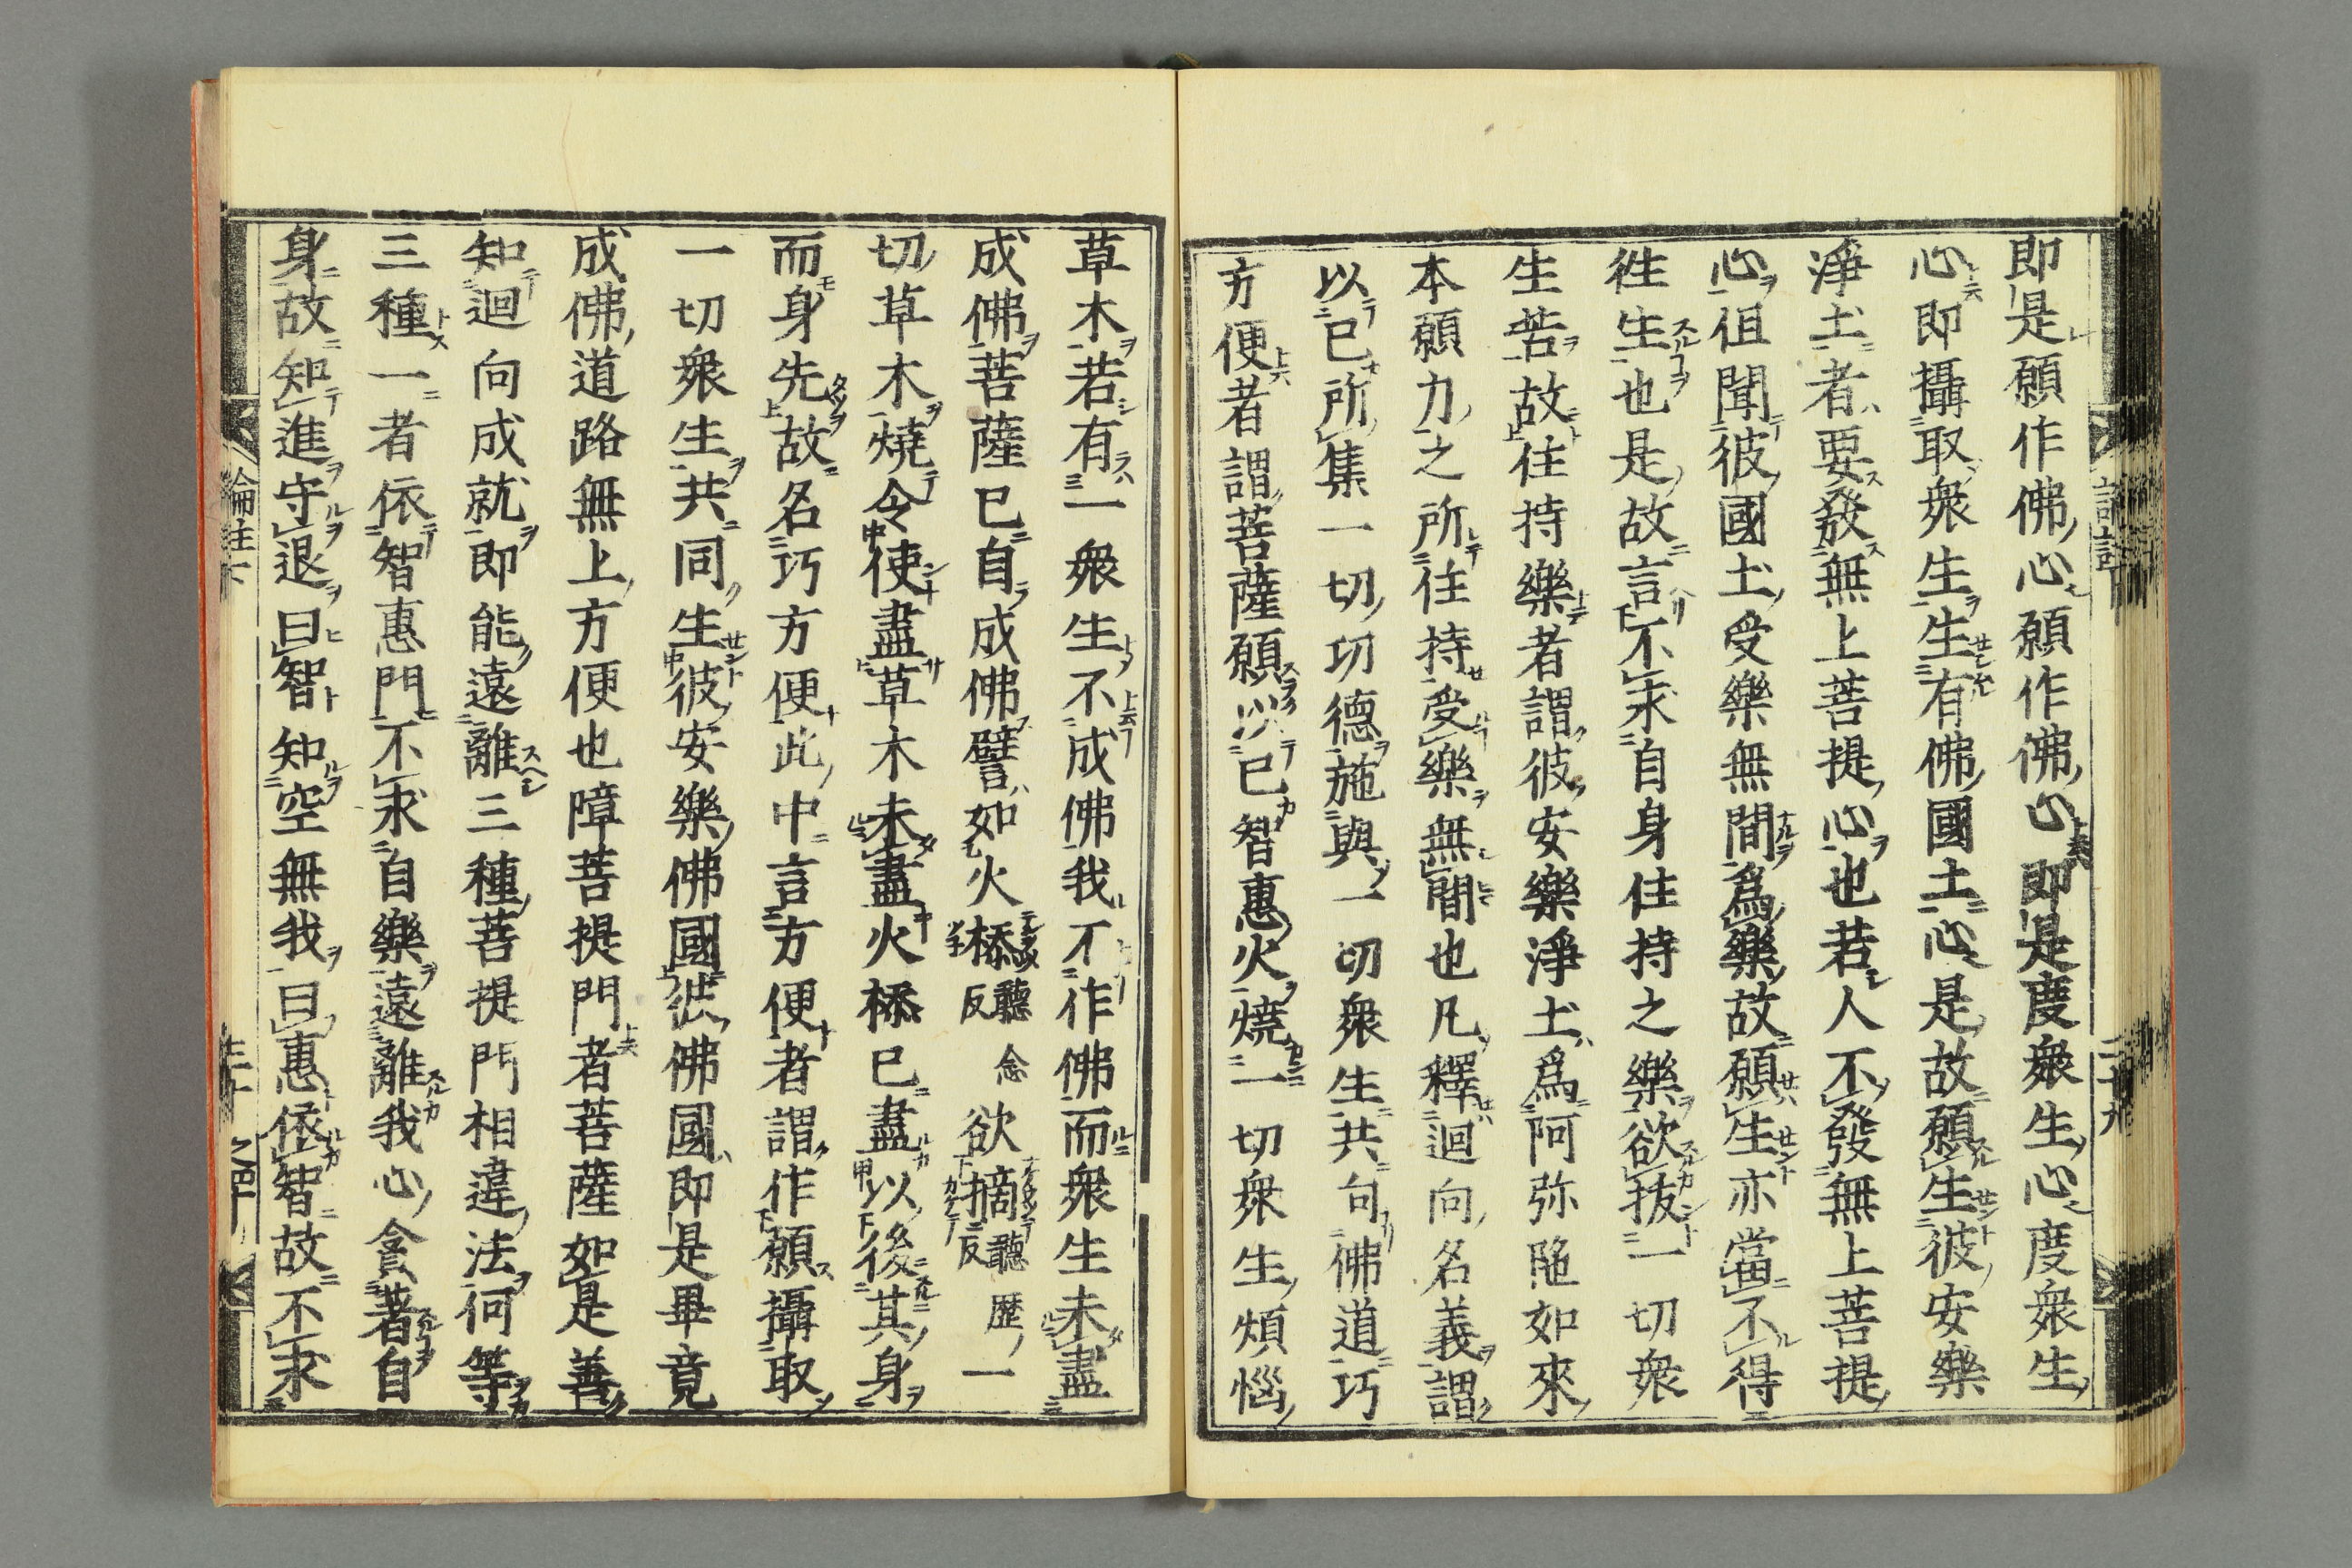 即是願作佛心願作佛心即是度衆生心度衆生
心即攝取衆生生有佛國土心是故願生彼安樂
淨土者要發無上菩提心也若人不發無上菩提
心但聞彼國土受樂無間爲樂故願生亦當不得
徃生也是故言不求自身住持之樂欲拔一切衆
生苦故住持樂者謂彼安樂淨土爲阿弥陁如來
本願力之所住持受樂無間也凡釋迴向名義謂
以已所集一切功德施與一切衆生共向佛道巧
方便者謂菩薩願以已智惠火燒一切衆生煩惱
草木若有一衆生不成佛我不作佛而衆生未盡
成佛菩薩已自成佛譬如火㮇聽念反欲摘聽歷反一
切草木燒令使盡草木未盡火㮇已盡以後其身
而身先故名巧方便此中言方便者謂作願攝取
一切衆生共同生彼安樂佛國彼佛國即是畢竟
成佛道路無上方便也障菩提門者菩薩如是善
知迴向成就即能遠離三種菩提門相違法何等
三種一者依智惠門不求自樂遠離我心貪著自
身故知進守退曰智知空無我曰惠依智故不求